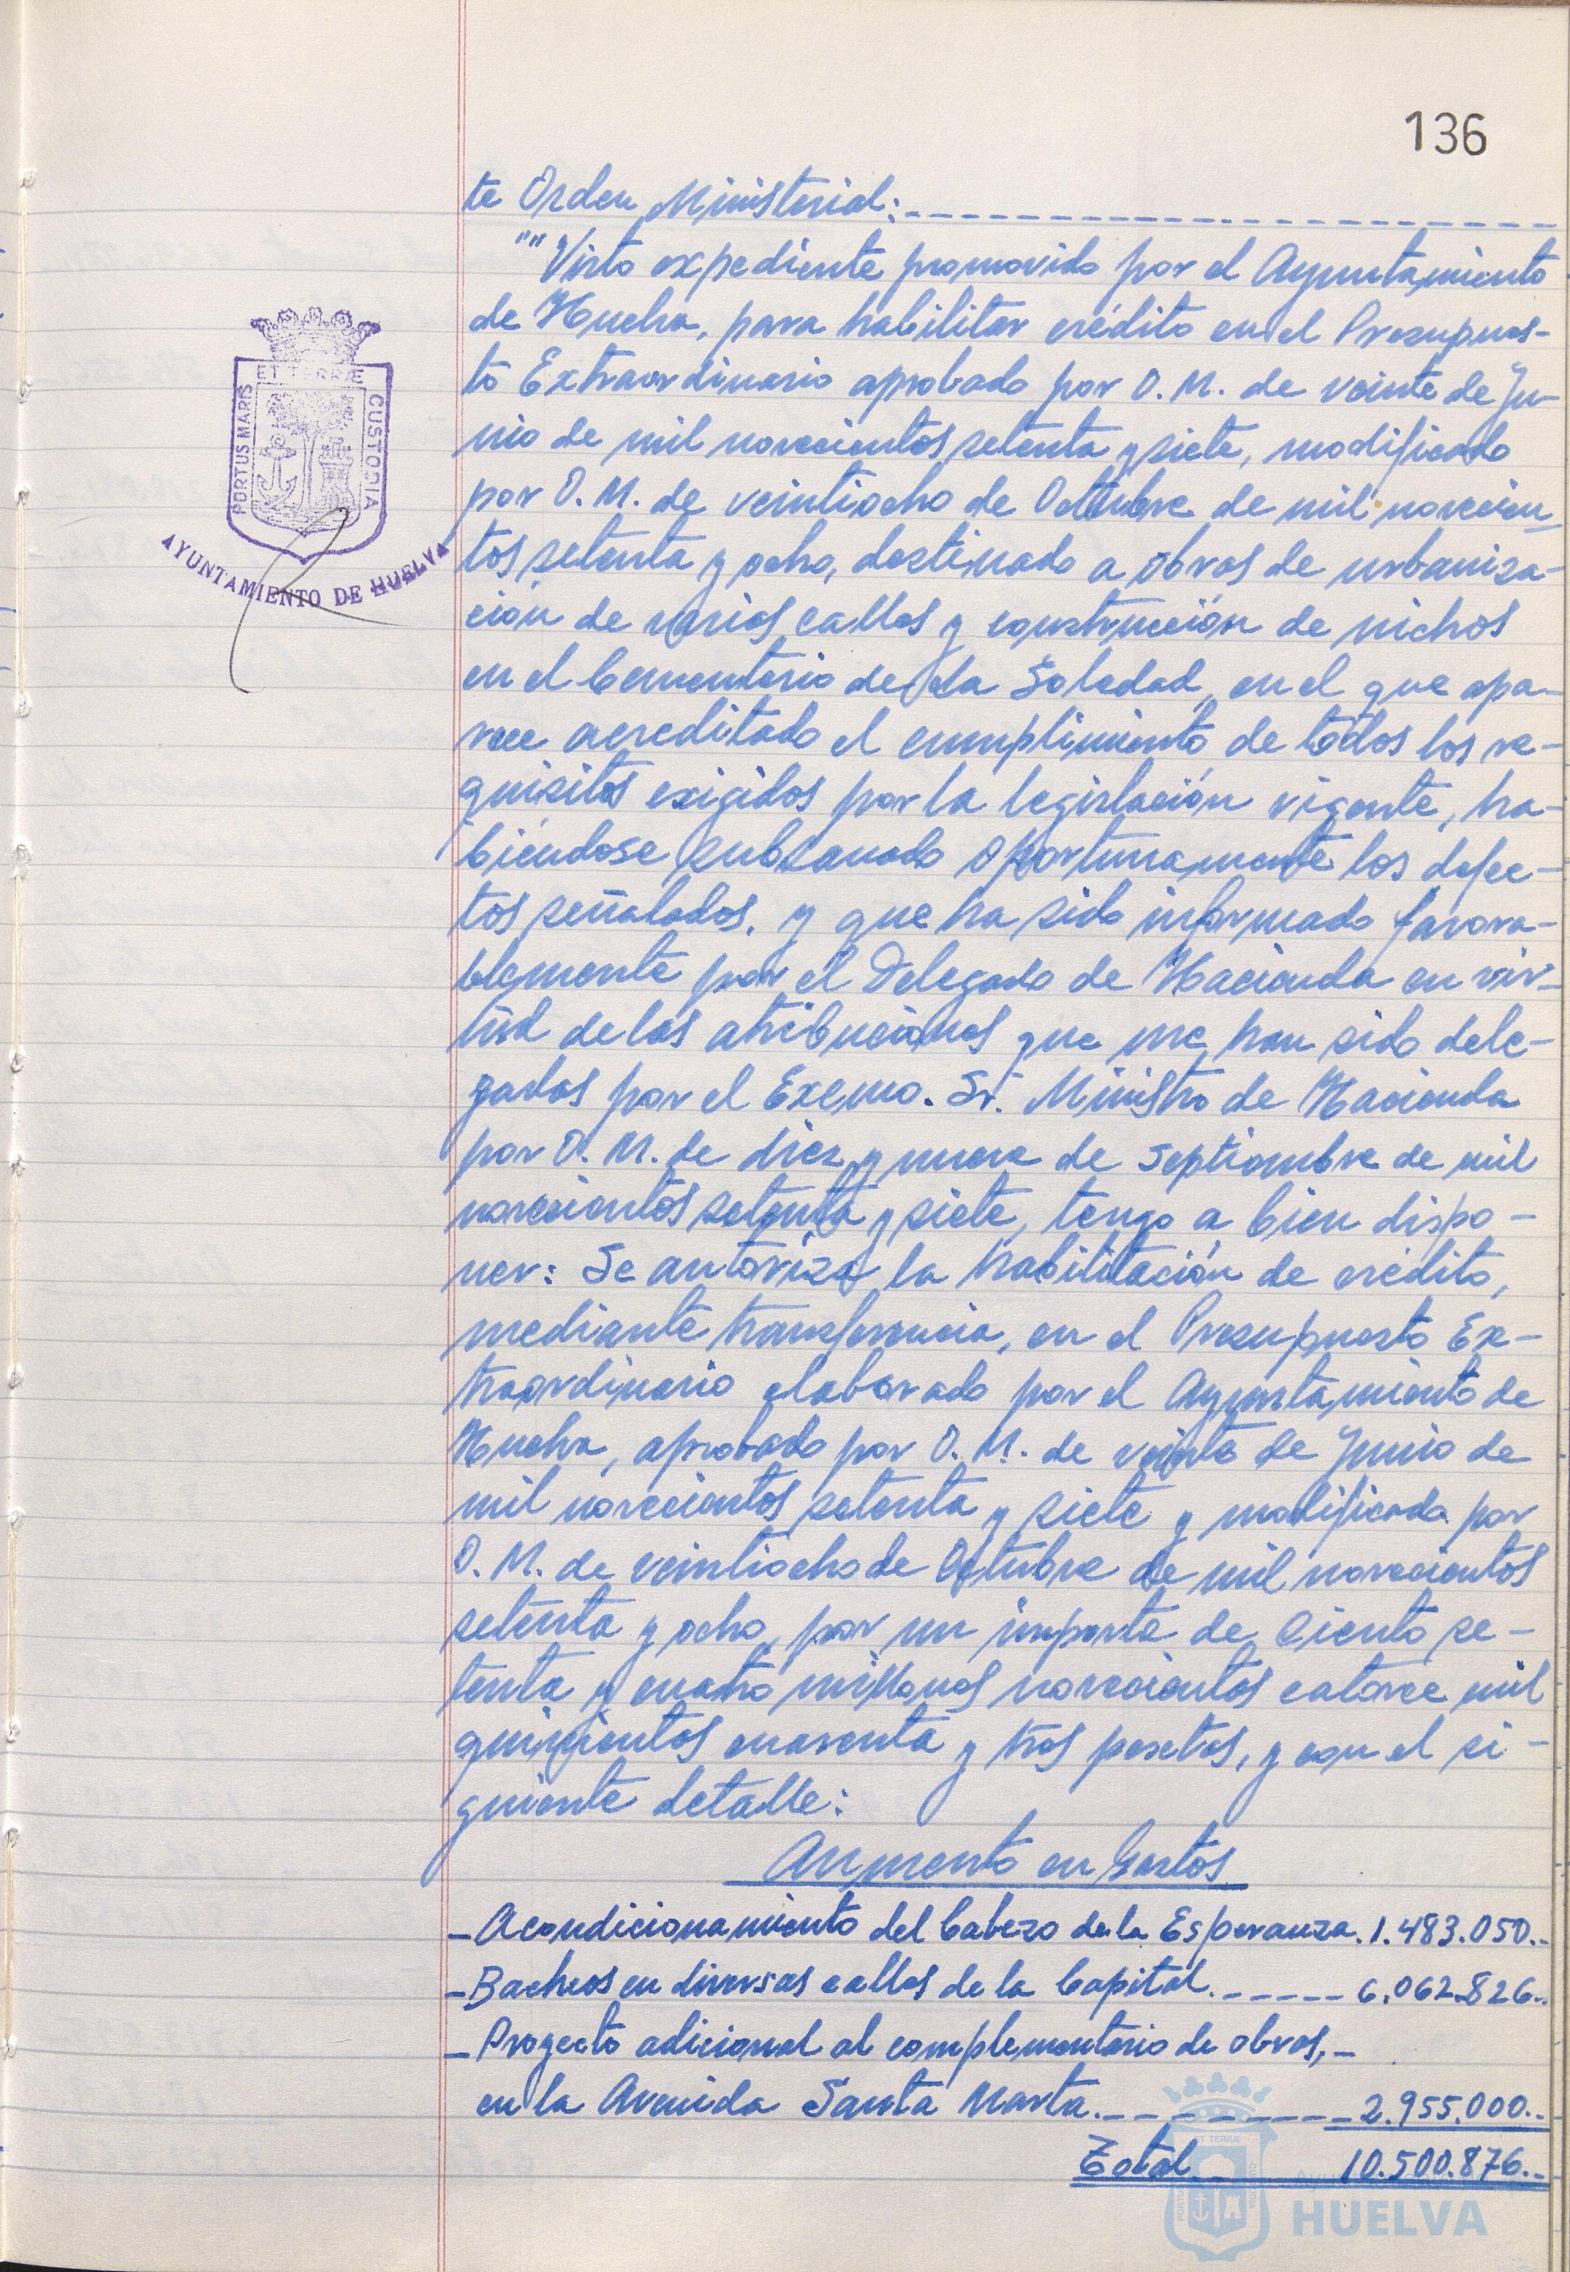 136
te Orden Ministerial:
""Visto expediente promovido por el Ayuntamiento
de Huelva, para habilitar crédito en el Presupues-
to Extraordinario aprobado por O. M. de veinte de Ju-
nio de mil novecientos setenta y siete, modificado
por O. M. de veintiocho de Octubre de mil novecien
tos setenta y ocho, destinado a obras de urbaniza-
ción de varias calles y construcción de nichos
en el Cementerio de la Soledad, en el que apa-
rece acreditado el cumplimiento de todos los re-
quisitos exigidos por la legislación vigente, ha-
biéndose subsanado oportunamente los defec-
tos señalados, y que ha sido informado favora-
blemente por el Delegado de Hacienda en vir-
tud de las atribuciones que me han sido dele-
gadas por el Excmo. Sr. Ministro de Hacienda
por O. M. de diez y nueve de Septiembre de mil
novecientos setenta y siete, tengo a bien dispo-
ner: Se autoriza la habilitación de crédito,
mediante transferencia, en el Presupuesto Ex-
traordinario elaborado por el Ayuntamiento de
Huelva, aprobado por O. M. de veinte de Junio de
mil novecientos setenta y siete y modificado por
O. M. de veintiocho de Octubre de mil novecientos
setenta y ocho, por un importe de ciento se-
tenta y cuatro millones novecientos catorce mil
quinientos cuarenta y tres pesetas, y con el si-
guiente detalle:
Aumento en Gastos
-Acondicionamiento del Cabezo de la Esperanza.1.483.050.-
-Bacheos en diversas calles de la Capital.-----6.062.826.-
-Proyecto adicional al complementario de obras,-
en la Avenida Santa Marta.------2.955.000.-
Total 10.500.876.-
PORTUS MARIS ET TERRÆ CUSTODIA
AYUNTAMIENTO DE HUELVA
HUELVA